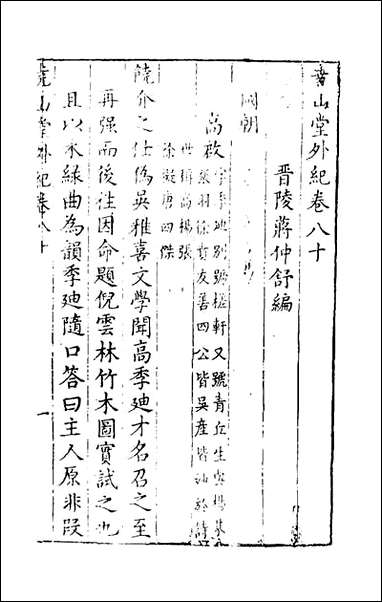 堯山堂外紀卷八十
晋陵蔣仲舒編
國朝
高啟
字季迪別號槎軒又號青丘生與楊基
張羽徐賁友善四公皆吳產皆工於詩
世稱高楊張
徐擬唐四傑
饒介之仕偽吳雅喜文學聞高季迪才名召之至
再强而後往因命題倪雲林竹木圖實試之也
且以木綠曲為韻季迪隨口答曰主人原非段
堯山堂外紀卷八十
一